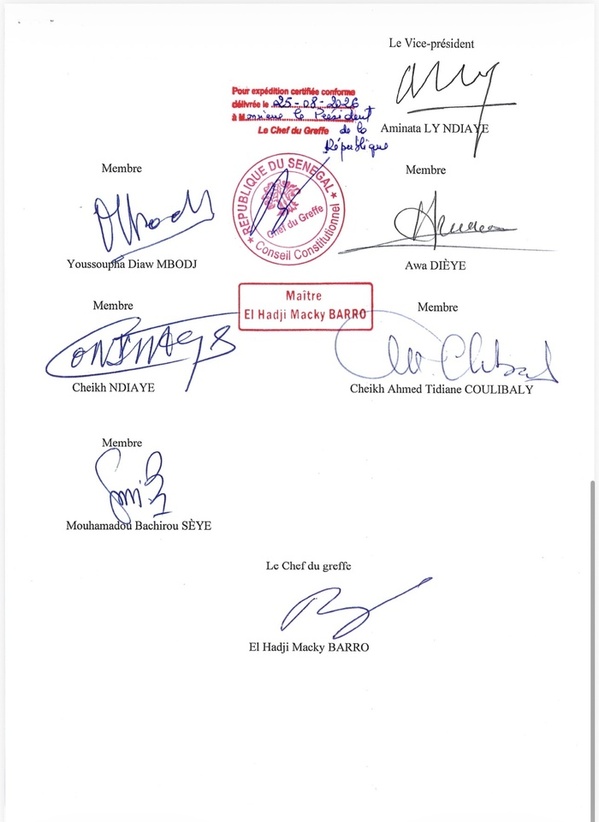 Le Vice-président
Pour expédition certifiée conforme
délivrée le 25-08-2026
à Monsieur le Président
de la
République
Le Chef du Greffe
Aminata LY NDIAYE
Membre
Membre
RÉPUBLIQUE DU SENEGAL
Chef du Greffe
Conseil Constitutionnel
Youssoupha Diaw MBODJ
Awa DIÈYE
Maître
El Hadji Macky BARRO
Membre
Membre
Cheikh NDIAYE
Cheikh Ahmed Tidiane COULIBALY
Membre
Mouhamadou Bachirou SÈYE
Le Chef du greffe
El Hadji Macky BARRO